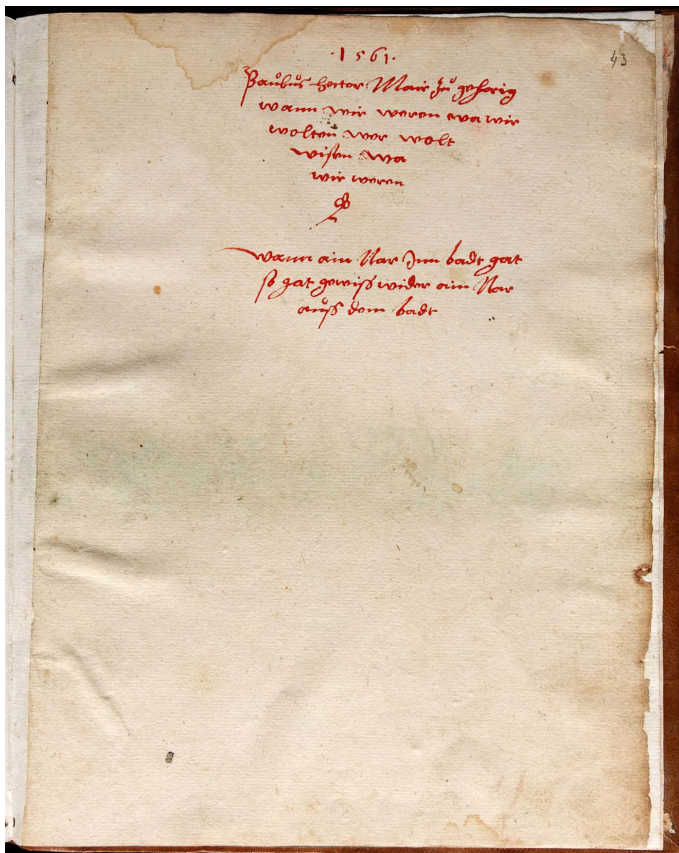 · 1561 ·
43
Paulus hector Mair zu gehorig
wann wir weren wa wir
wolten wer wolt
wisen wa
wir weren
wann ain Nar Inn badt gat
so gat gewiß wider ain Nar
auß dem badt